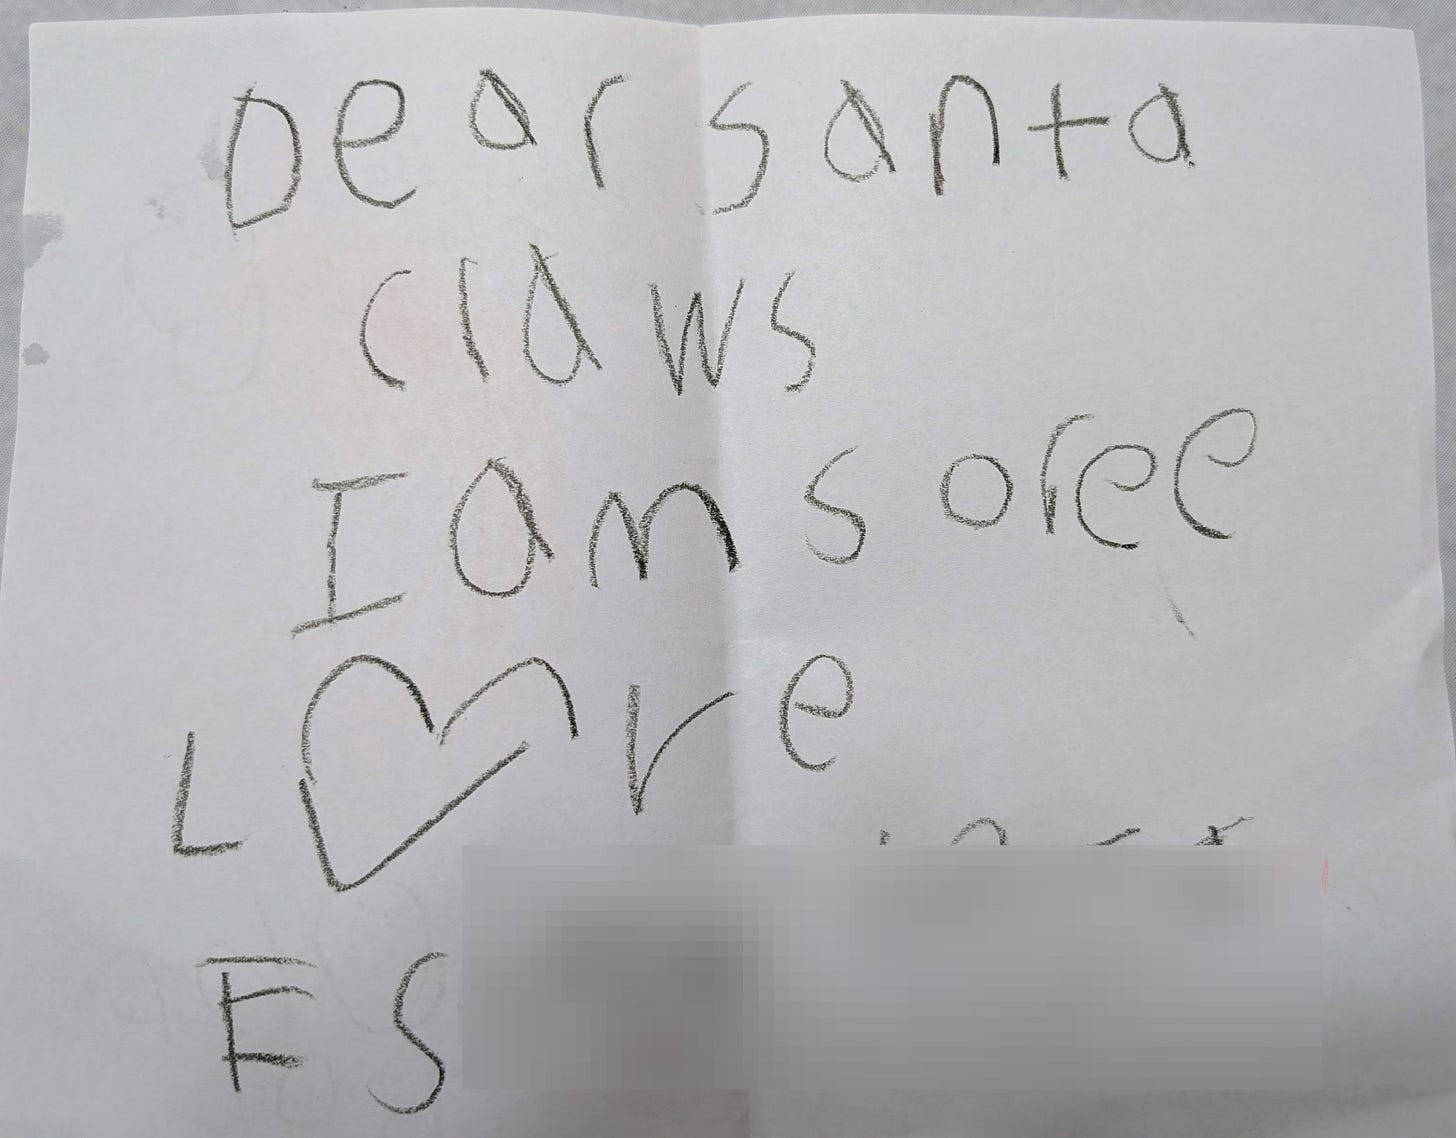 Dear santa
claws
I am soree
L♡ve
ES